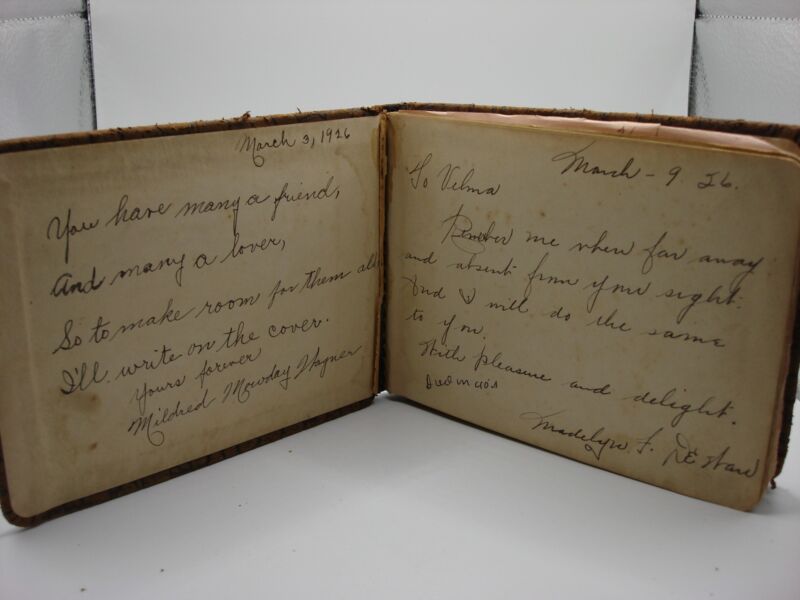 March 3, 1926
You have many a friend,
And many a lover,
So to make room for them all
I'll write on the cover.
Yours forever
Mildred Mowday Wagner
March - 9 26.
To Velma
me when far away
and absent from your sight.
And I will do the same
to you.
With pleasure and delight.
Madelyn F.